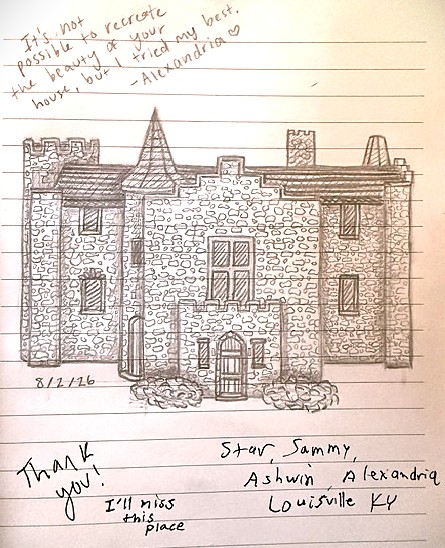 It's not
possible to recreate
the beauty of your
house, but I tried my best.
-Alexandria ♡
8/2/26
Thank
you!
I'll miss
this
place
Star, Sammy,
Ashwin, Alexandria
Louisville KY